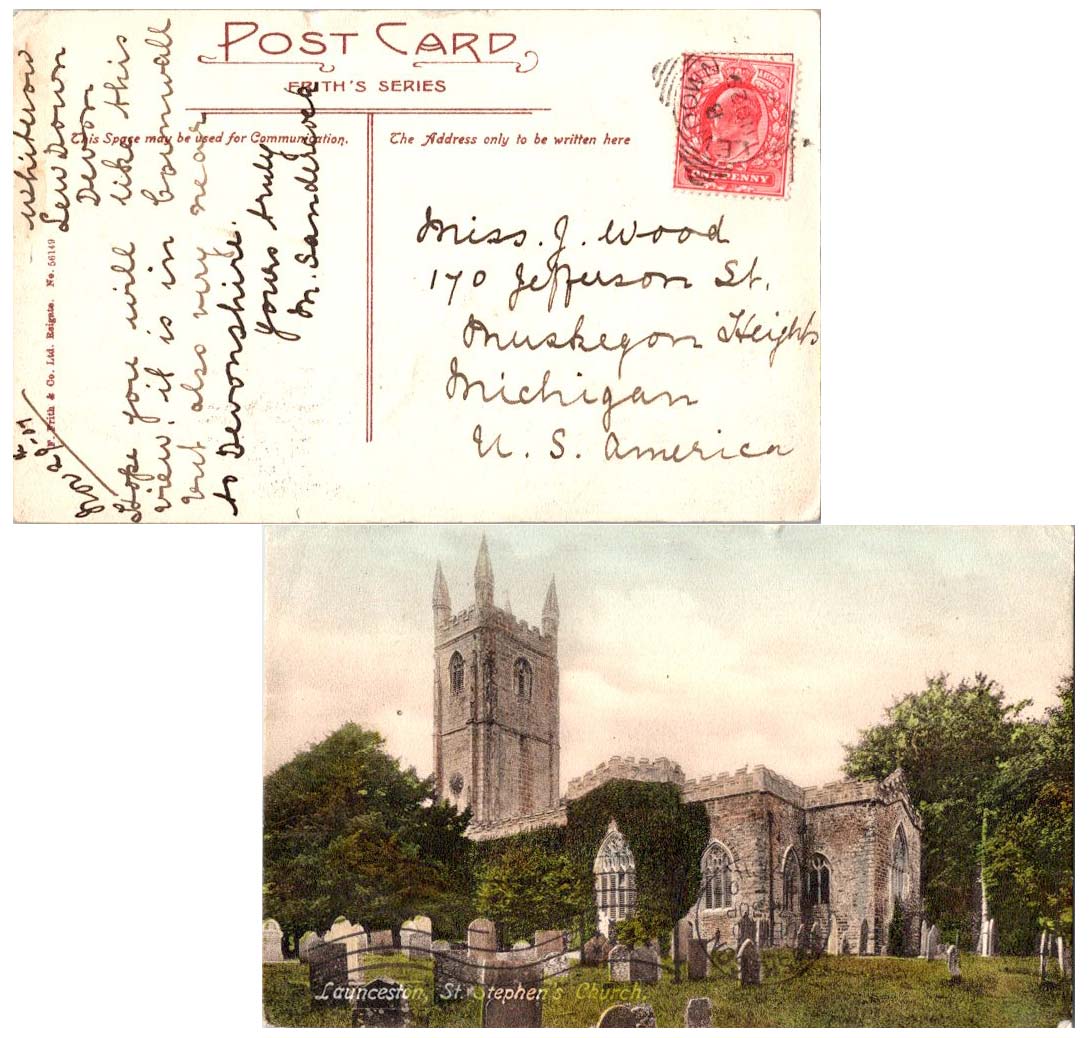 POST CARD
FRITH'S SERIES
This Space may be used for Communication.
The Address only to be written here
Whiteron
Lew Down
Devon
Hope you will like this
view. it is in Cornwall
but also very near
to Devonshire.
yours truly
M. Sandercock
F. Frith & Co. Ltd. Reigate. No. 56149
Miss. J. Wood
170 Jefferson St.
Muskegon Heights
Michigan
U. S. America
DOWN
ONE PENNY
Launceston, St. Stephen's Church.